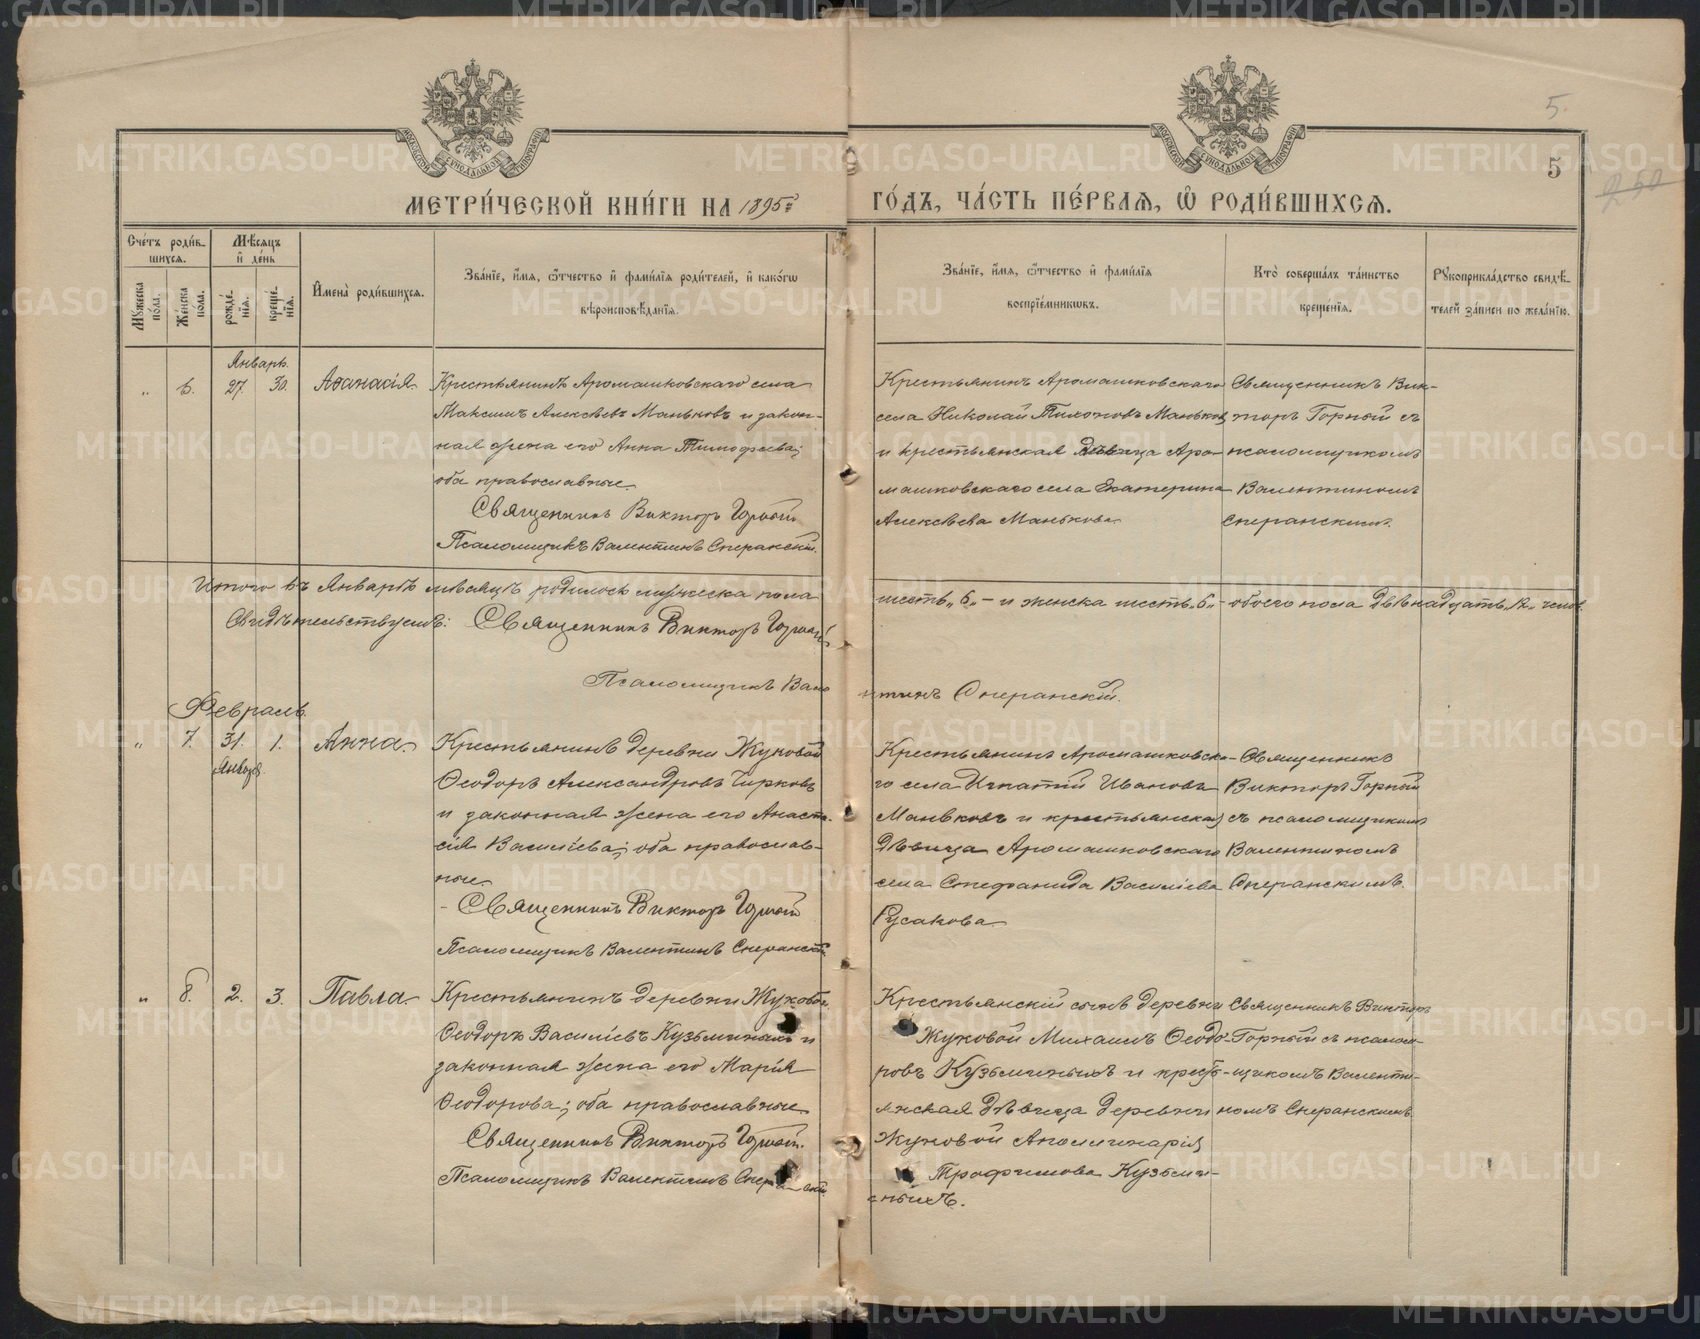 5.
5
250
МЕТРИ́ЧЕСКОЙ КНИ́ГИ НА 1895й
ГО́ДЪ, ЧА́СТЬ ПЕ́РВАѦ, Ѡ҆ РОДИ́ВШИХСѦ.
Сче́тъ роди́в-
шихся.
Мѣ́сяцъ
и҆ де́нь
Мꙋжеска по́ла.
Же́нска по́ла.
рожде́-
нїя.
креще́-
нїя.
И҆мена̀ роди́вшихся.
Зва́нїе, и҆́мя, ѻ҆́тчество и҆ фами́лїя роди́телей, и҆ како́гѡ
вѣроисповѣ́данїя.
Зва́нїе, и҆́мя, ѻ҆́тчество и҆ фами́лїя
воспрїе́мникѡвъ.
Кто̀ соверша́лъ та́инство
креще́нїя.
Рꙋкоприкла́дство свидѣ́-
телей за́писи по жела́нїю.
Январь.
„ 6. 27. 30. Аѳанасія
Крестьянинъ Аромашковскаго села
Максимъ Алексѣевъ Маньковъ и закон-
ная жена его Анна Тимофеева;
оба православные.
Священникъ Викторъ Горный
Псаломщикъ Валентинъ Сперанскій.
Крестьянинъ Аромашковскаго
села Николай Тихоновъ Маньковъ
и крестьянская дѣвица Аро-
машковскаго села Екатерина
Алексѣева Манькова
Священникъ Вик-
торъ Горный съ
псаломщикомъ
Валентиномъ
Сперанскимъ.
Итого въ Январѣ мѣсяцѣ родилось мужеска пола
шесть „6„ – и женска шесть „6„ – обоего пола двѣнадцать „12„ челов.
Свидѣтельствуемъ: Священникъ Викторъ Горный
Псаломщикъ Вале
нтинъ Сперанскій.
Февраль.
„ 7. 31. 1. Анна.
Января.
Крестьянинъ деревни Жуковой
Ѳеодоръ Александровъ Чирковъ
и законная жена его Анаста-
сія Василіева; оба православ-
ные.
– Священникъ Викторъ Горный
Псаломщикъ Валентинъ Сперанскій
Крестьянинъ Аромашковска-
го села Игнатій Ивановъ
Маньковъ и крестьянская
дѣвица Аромашковскаго
села Стефанида Василіева
Русакова
Священникъ
Викторъ Горный
съ псаломщикомъ
Валентиномъ
Сперанскимъ.
„ 8. 2. 3. Павла
Крестьянинъ деревни Жуковой
Ѳеодоръ Василіевъ Кузьминыхъ и
законная жена его Марія
Ѳеодорова; оба православные
Священникъ Викторъ Горный.
Псаломщикъ Валентинъ Сперанскій
Крестьянскій сынъ деревни
Жуковой Михаилъ Ѳеодо-
ровъ Кузьминыхъ и кресть-
янская дѣвица деревни
Жуковой Аполлинарія
Трофимова Кузьми-
ныхъ.
Священникъ Викторъ
Горный съ псалом-
щикомъ Валенти-
номъ Сперанскимъ.
METRIKI.GASO-URAL.RU